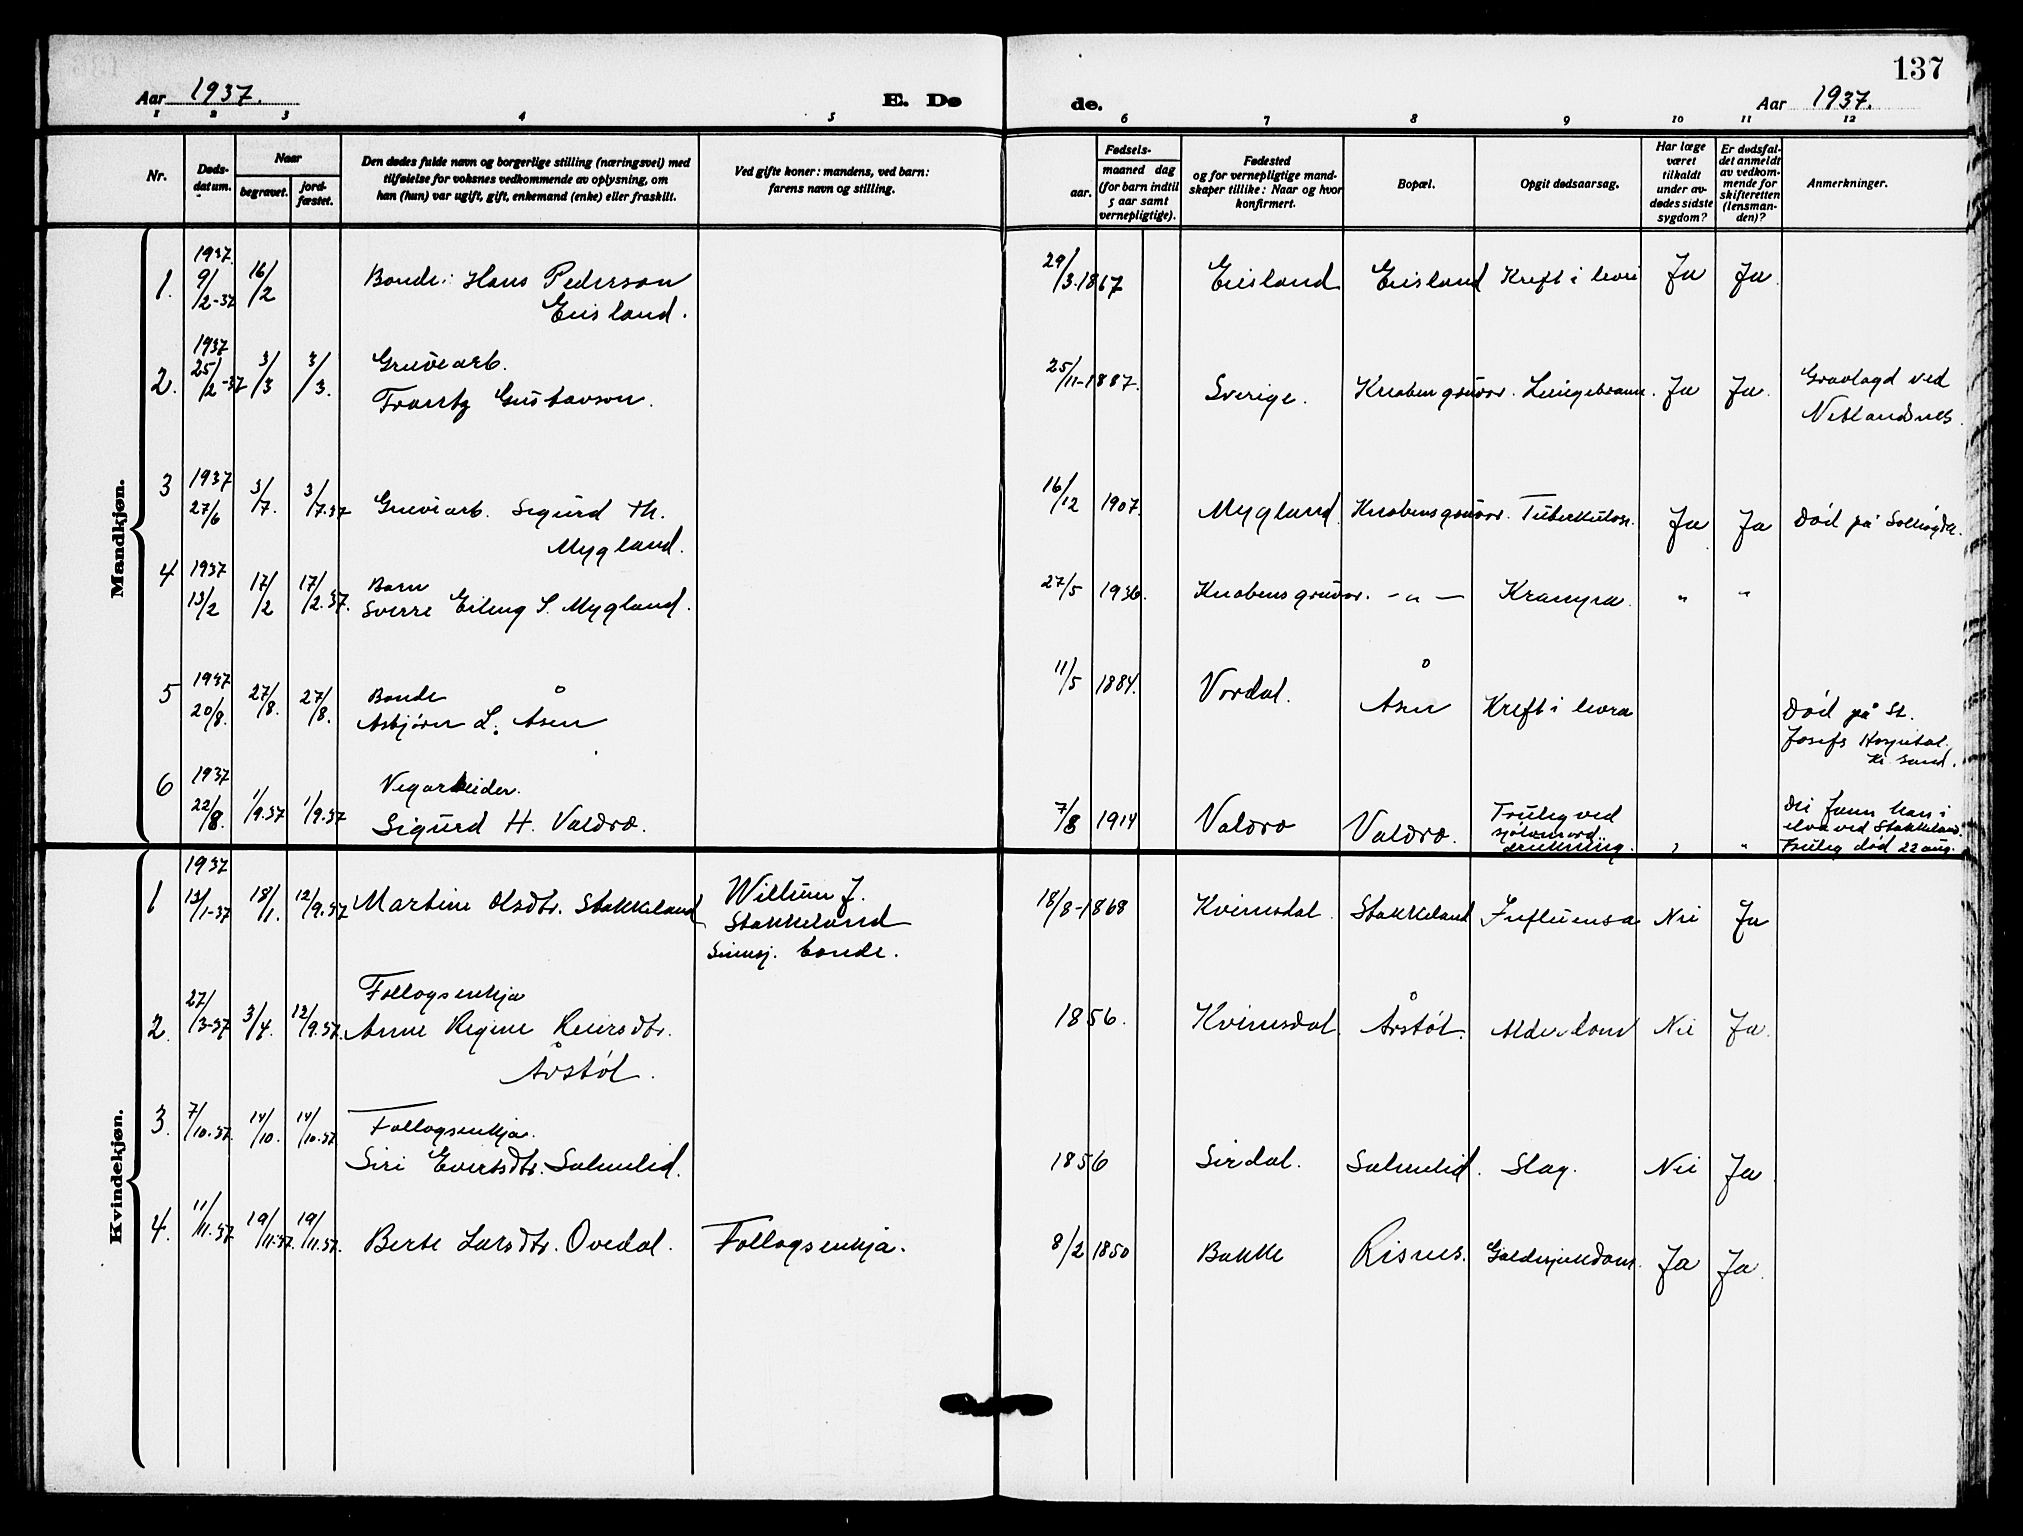 137
Aar 1937. E. Dø de. Aar 1937.
1 2 3 4 5 6 7 8 9 10 11 12
Nr. Døds-datum. Naar begravet. jord-fæstet. Den dødes fulde navn og borgerlige stilling (næringsvei) med tilføielse for voksnes vedkommende av oplysning, om han (hun) var ugift, gift, enkemand (enke) eller fraskilt. Ved gifte koner: mandens, ved barn: farens navn og stilling. Fødsels- aar. maaned dag (for barn indtil 5 aar samt vernepligtige). Fødested og for vernepligtige mand-skaper tillike: Naar og hvor konfirmert. Bopæl. Opgit dødsaarsag. Har læge været tilkaldt under av-dødes sidste sygdom? Er dødsfal-det anmeldt av vedkom-mende for skifteretten (lensman-den)? Anmerkninger.
Mandkjøn.
1937.
1. 9/2-37 16/2 Bonde: Hans Pederson 29/3.1867 Eiesland Eiesland Kreft i levri Ja Ja
Eiesland.
1937
2. 25/2-37 3/3 3/3. Gruvearb. 25/11-1887. Sverige. Knaben gruvor. Lungebrann. Ja Ja. Gravlagd ved
Frantz Gustavson. Netlandsnes.
3 1937
27/6 3/7. 3/7.37 Gruvearb. Sigurd Th. 16/12 1907. Mygland Knabens gruvor. Tuberkulose. Ja Ja Død på Solhøgda.
Mygland.
4 1937
13/2 17/2 17/2.37. Barn 27/5 1936. Knabens gruvor. -"- Kramyra. " "
Sverre Erling S. Mygland.
5 1937
20/8. 27/8. 27/8. Bonde 11/5 1884. Vordal. Åsen Kreft i levra Død på St.
Asbjørn L. Åsen Josefs Hospital.
Kr. sand.
6 1937
22/8. 1/9.37 1/9.37 Vegarbeider. 7/8 1914 Valdrø Valdrø. Truleg ved Dei fann han i
Sigurd H. Valdrø. sjølvmord elva ved Stakkeland.
drukning. " " Truleg død 22 aug.
Kvindekjøn.
1937
1 13/1-37 18/1. 12/9.37 Martine Olsdtr. Stakkeland Willum J. 18/8-1868 Kvinesdal. Stakkeland Influensa Nei Ja
Stakkeland
bonde.
Follogsenkja
2. 27/3-37 3/4. 12/9.37. Anne Regine Reiersdtr. 1856. Kvinesdal. Årstøl. Alderdom Nei Ja.
Årstøl.
3. 7/10.37. 14/10. 14/10.37 Follogsenkja.
Siri Evertsdtr. Salmelid. 1856 Sirdal. Salmelid. Slag. Nei Ja
4. 11/11.37 19/11.37. 19/11.37. Berte Larsdtr. Ovedal. Follogsenkja. 8/2 1850 Bakke Risnes. Galdesjukdom. Ja Ja.